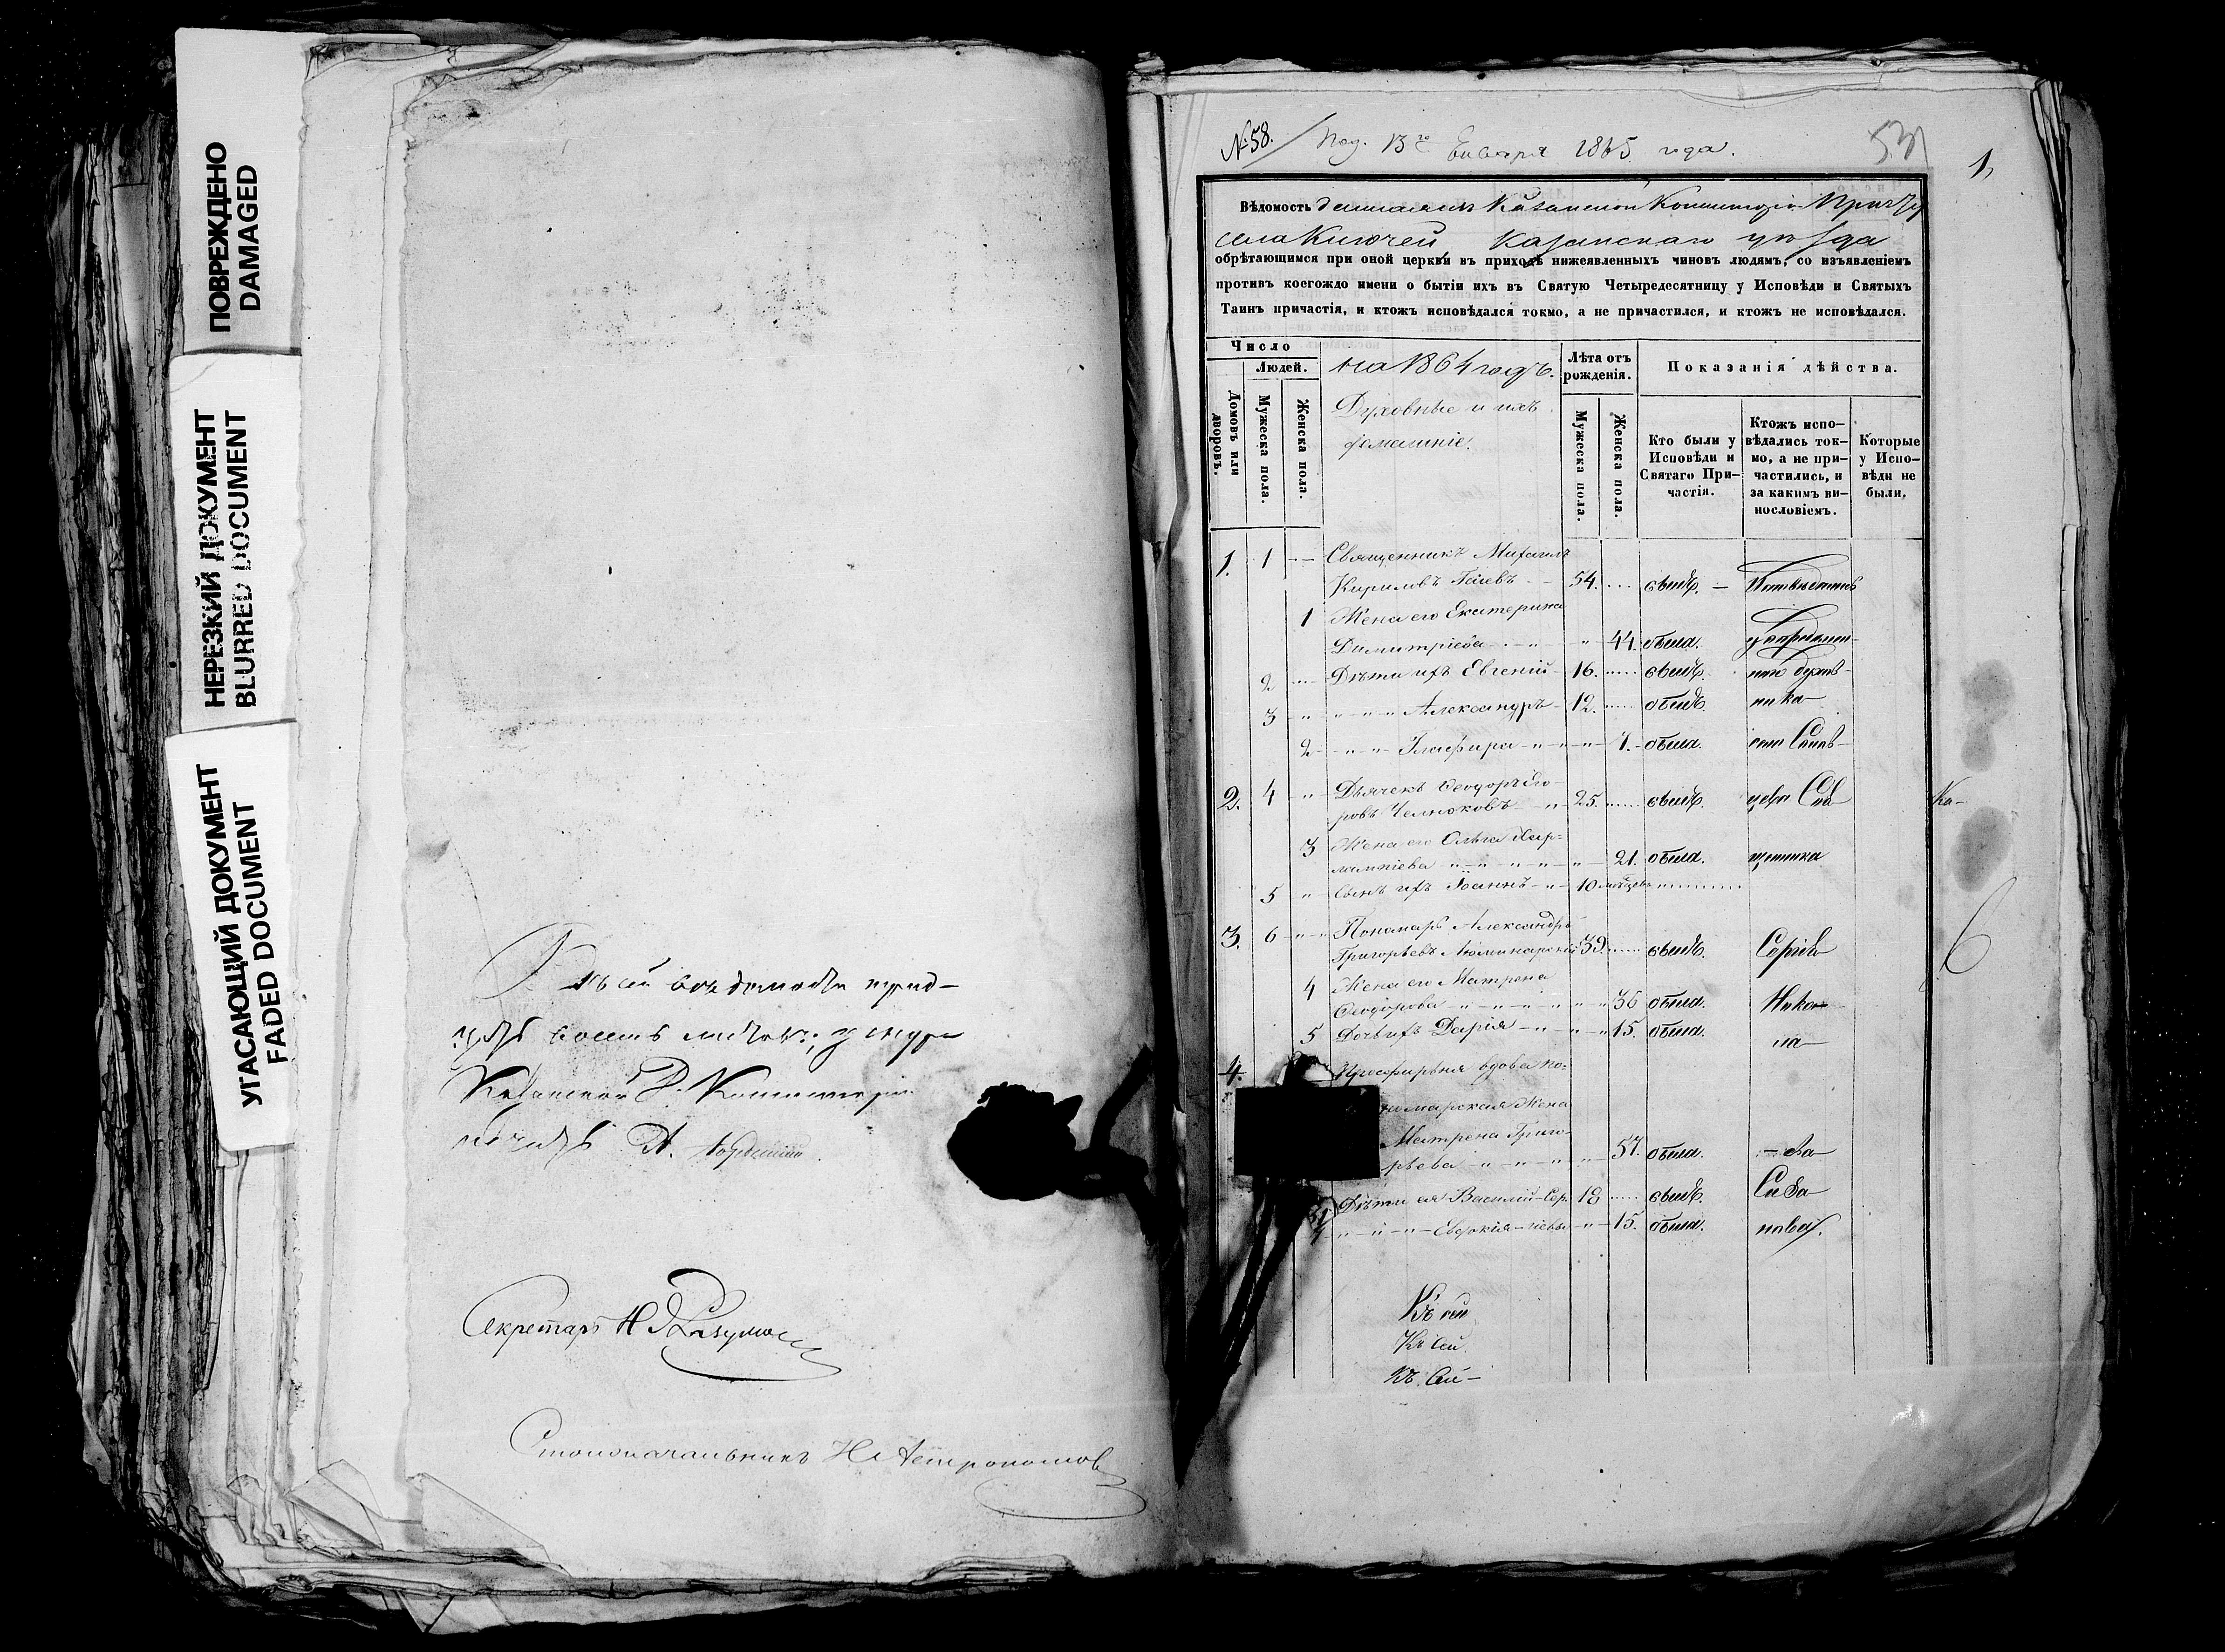 ПОВРЕЖДЕНО
DAMAGED
НЕРЕЗКИЙ ДОКУМЕНТ
BLURRED DOCUMENT
УГАСАЮЩИЙ ДОКУМЕНТ
FADED DOCUMENT
Въ сей ведомости трид-
цать восемь листовъ;
Казанской Д. Консисторіи
Секретарь Н Разумов
Столоначальникъ Н Аетрономов
№ 58. Пол. 13го Генваря 1865 года.
53
1,
Вѣдомость Казанской Консисторіи
села Ключей, Казанскаго уѣзда
обрѣтающимся при оной церкви въ приходѣ нижеявленныхъ чиновъ людямъ, со изъявленіемъ
противъ коегождо имени о бытіи ихъ въ Святую Четыредесятницу у Исповѣди и Святыхъ
Таинъ причастія, и ктожъ исповѣдался токмо, а не причастился, и ктожъ не исповѣдался.
Число
Людей.
Домовъ или дворовъ.
Мужеска пола.
Женска пола.
на 1864 годъ.
Духовные и ихъ
фамиліи.
Лѣта отъ рожденія.
Мужеска пола.
Женска пола.
Показанія дѣйства.
Кто были у Исповѣди и Святаго При-частія.
Ктожъ испо-вѣдались ток-мо, а не при-частились, и за какимъ ви-нословіемъ.
Которые у Испо-вѣди не были.
1. 1 Священникъ Михаилъ
Кириловъ Гаіевъ 54. былъ.
1 Жена его Екатерина
Димитріева 44. была.
2 Дѣти ихъ Евгеній 16. былъ. духов-
3 Александръ 12. былъ. ника
2 Глафира 7. была.
2. 4 Дьячекъ Ѳеодоръ Его
ровъ Челноковъ 25. былъ.
Ка-
3 Жена его Ольга Хар-
лампіева 21. была. щенника
5 Сынъ ихъ Іоаннъ 10 мѣсяцевъ
3. 6 Пономарь Александръ
Григорьевъ 39. былъ. Сергіева
4 Жена его Матрона
Ѳеодорова 36 была. Нико
5 Дочь ихъ Дарія 15. была. ла
4. Просфирня вдова по-
номарская Жена
Матрена Григо-
рьева 57. была.
Дѣти ея Василій Сер. 18 былъ.
Евдокія гіевы 15. была.
Къ сей
Къ сей
Къ Сей